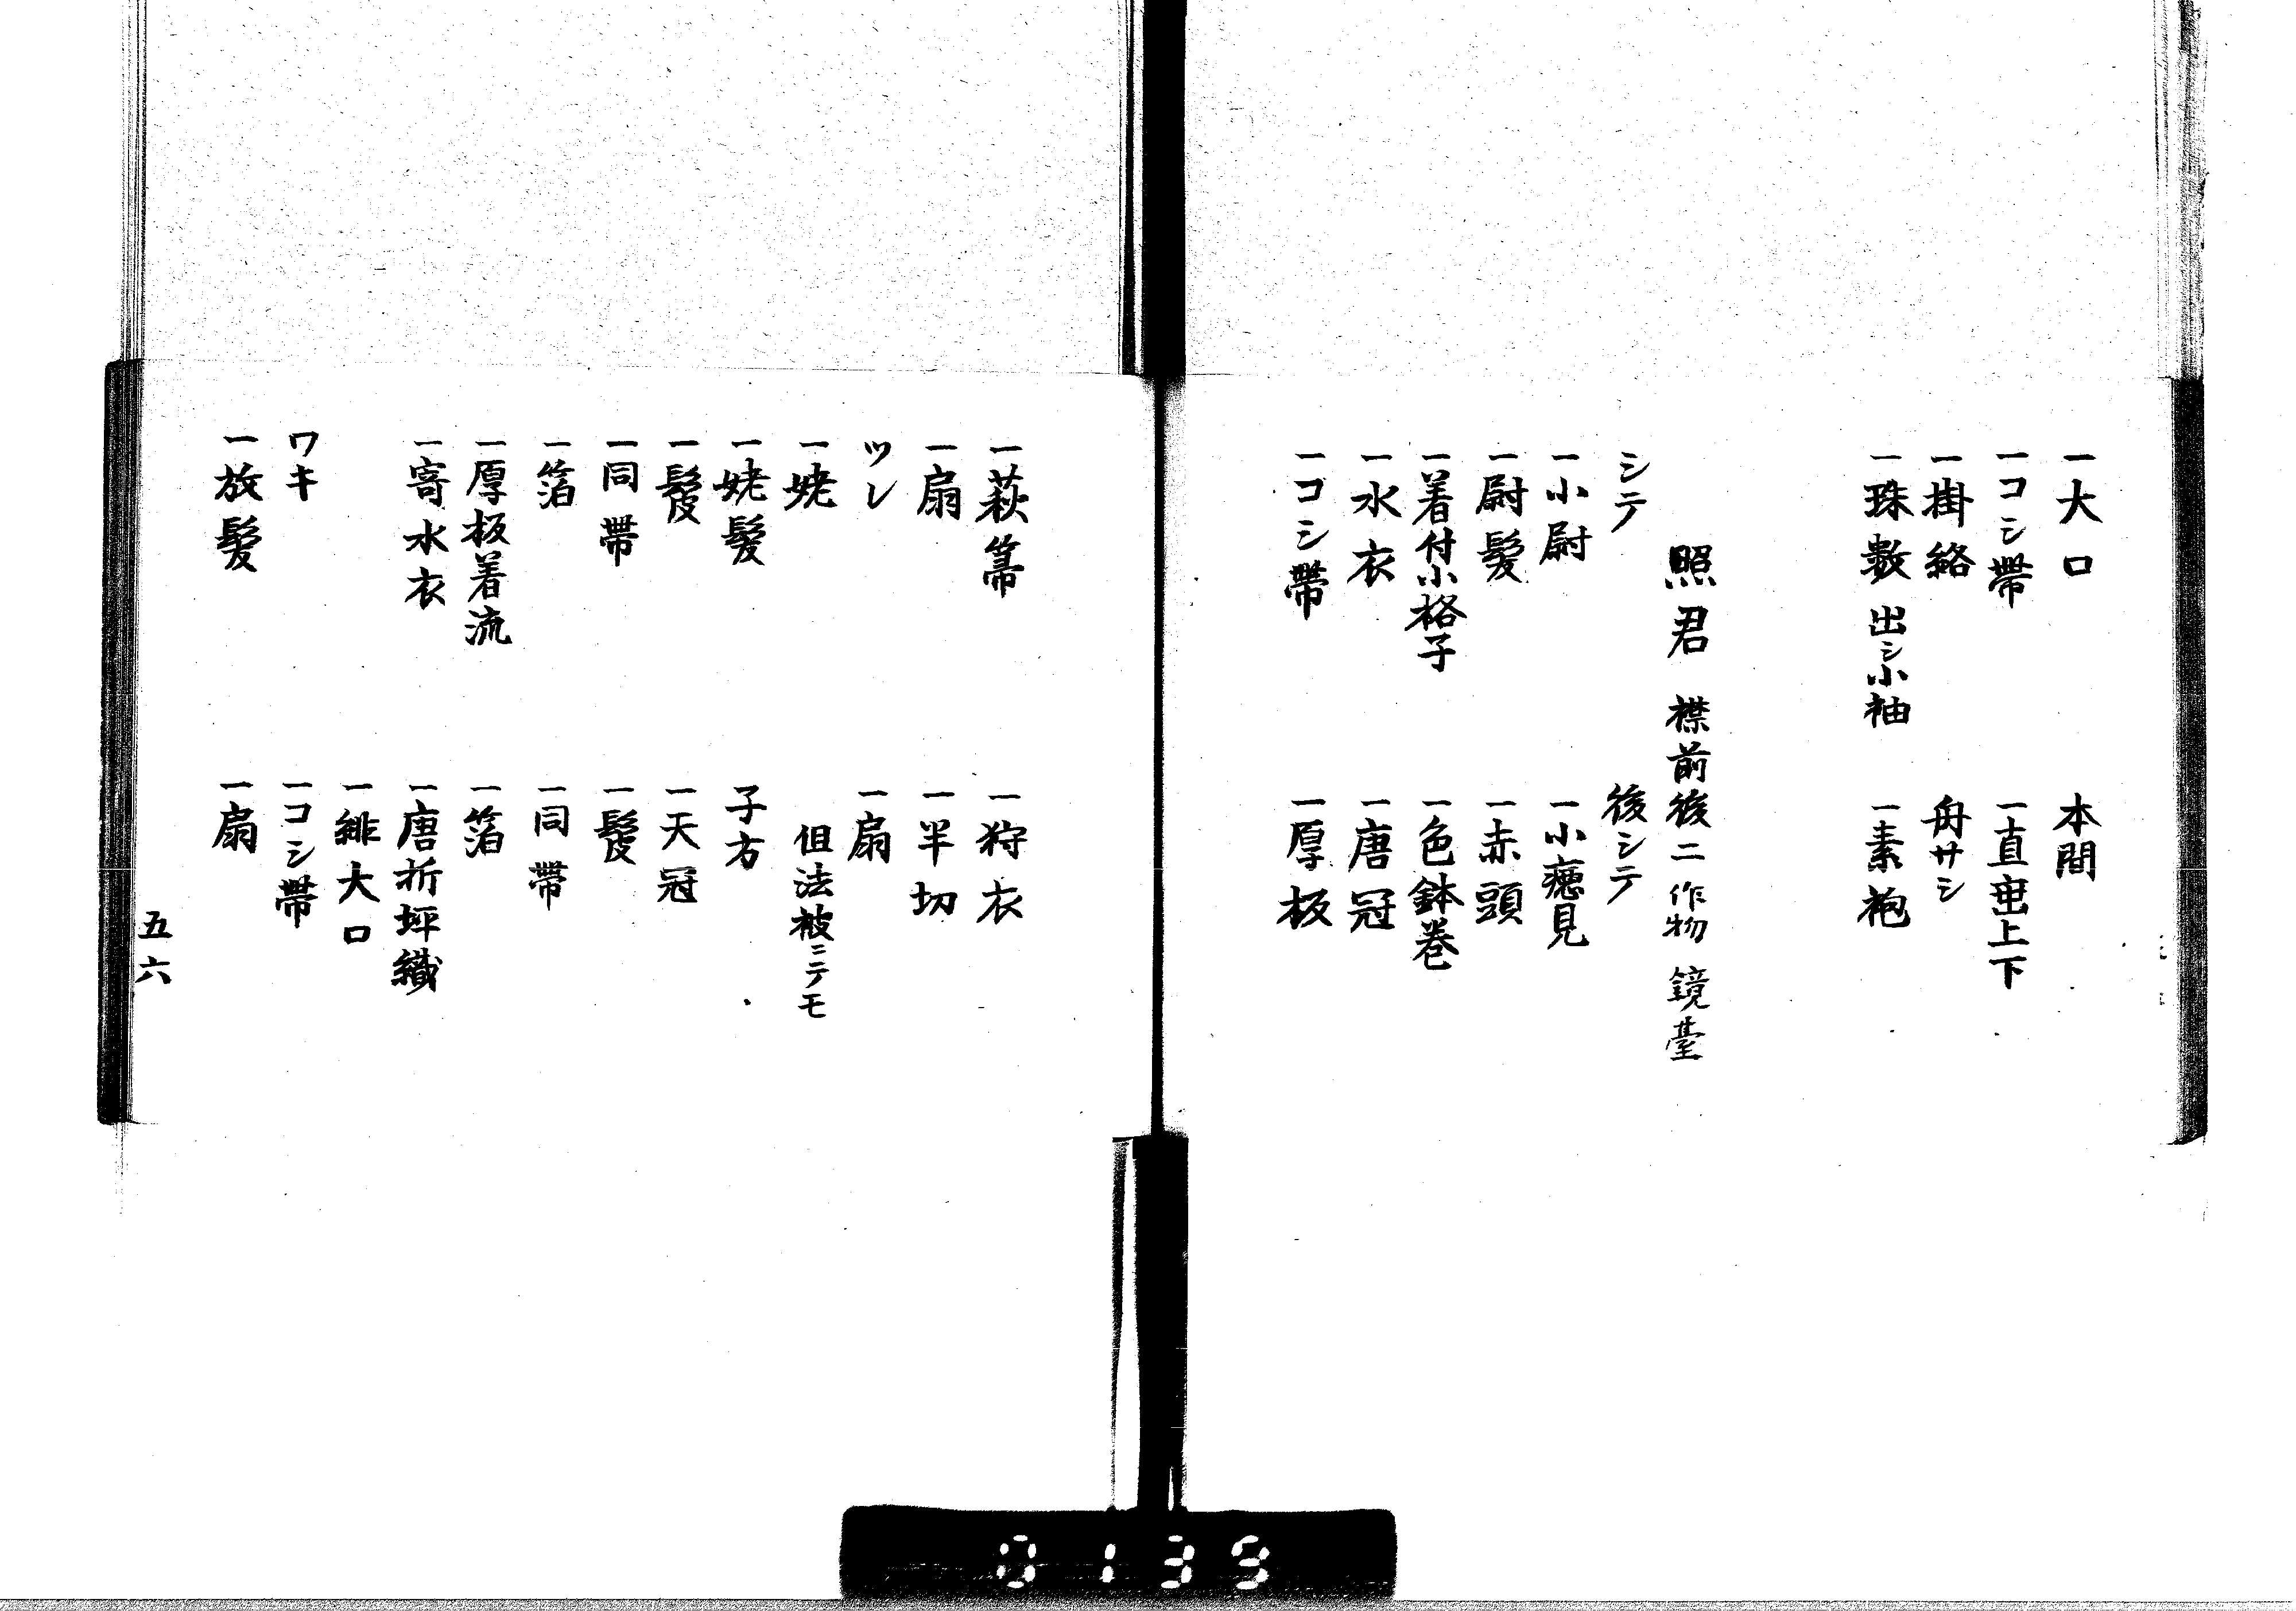 一大口
一コシ帶
一掛絡
一珠數 出シ小袖
本間
一直垂上下
舟サシ
一素袍
照君 襟前後二 作物 鏡臺
シテ
一小尉
一尉髮
一着付小格子
一水衣
一コシ帶
後シテ
一小癋見
一赤頭
一色鉢巻
一唐冠
一厚板
一萩箒
一扇
ツレ
一姥
一姥髮
一鬘
一同帶
一箔
一厚板着流
一寄水衣
ワキ
一放髮
一狩衣
一半切
一扇
但法被ニテモ
子方
一天冠
一鬘
一同帶
一箔
一唐折坪織
一緋大口
一コシ帶
一扇
五六
0139